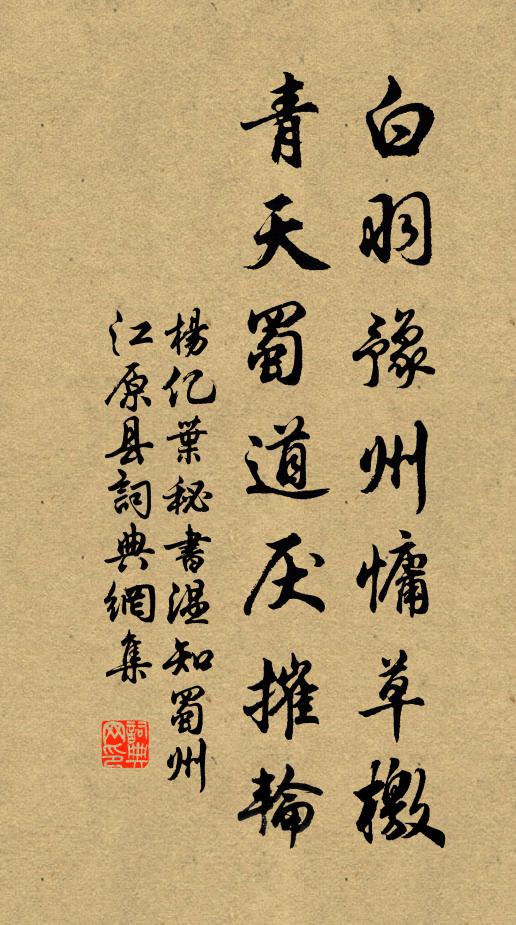 白羽豫州慵草檄
青天蜀道厌摧轮
楊亿葉秘書温知蜀州
江原县詞典網集
詞典网印